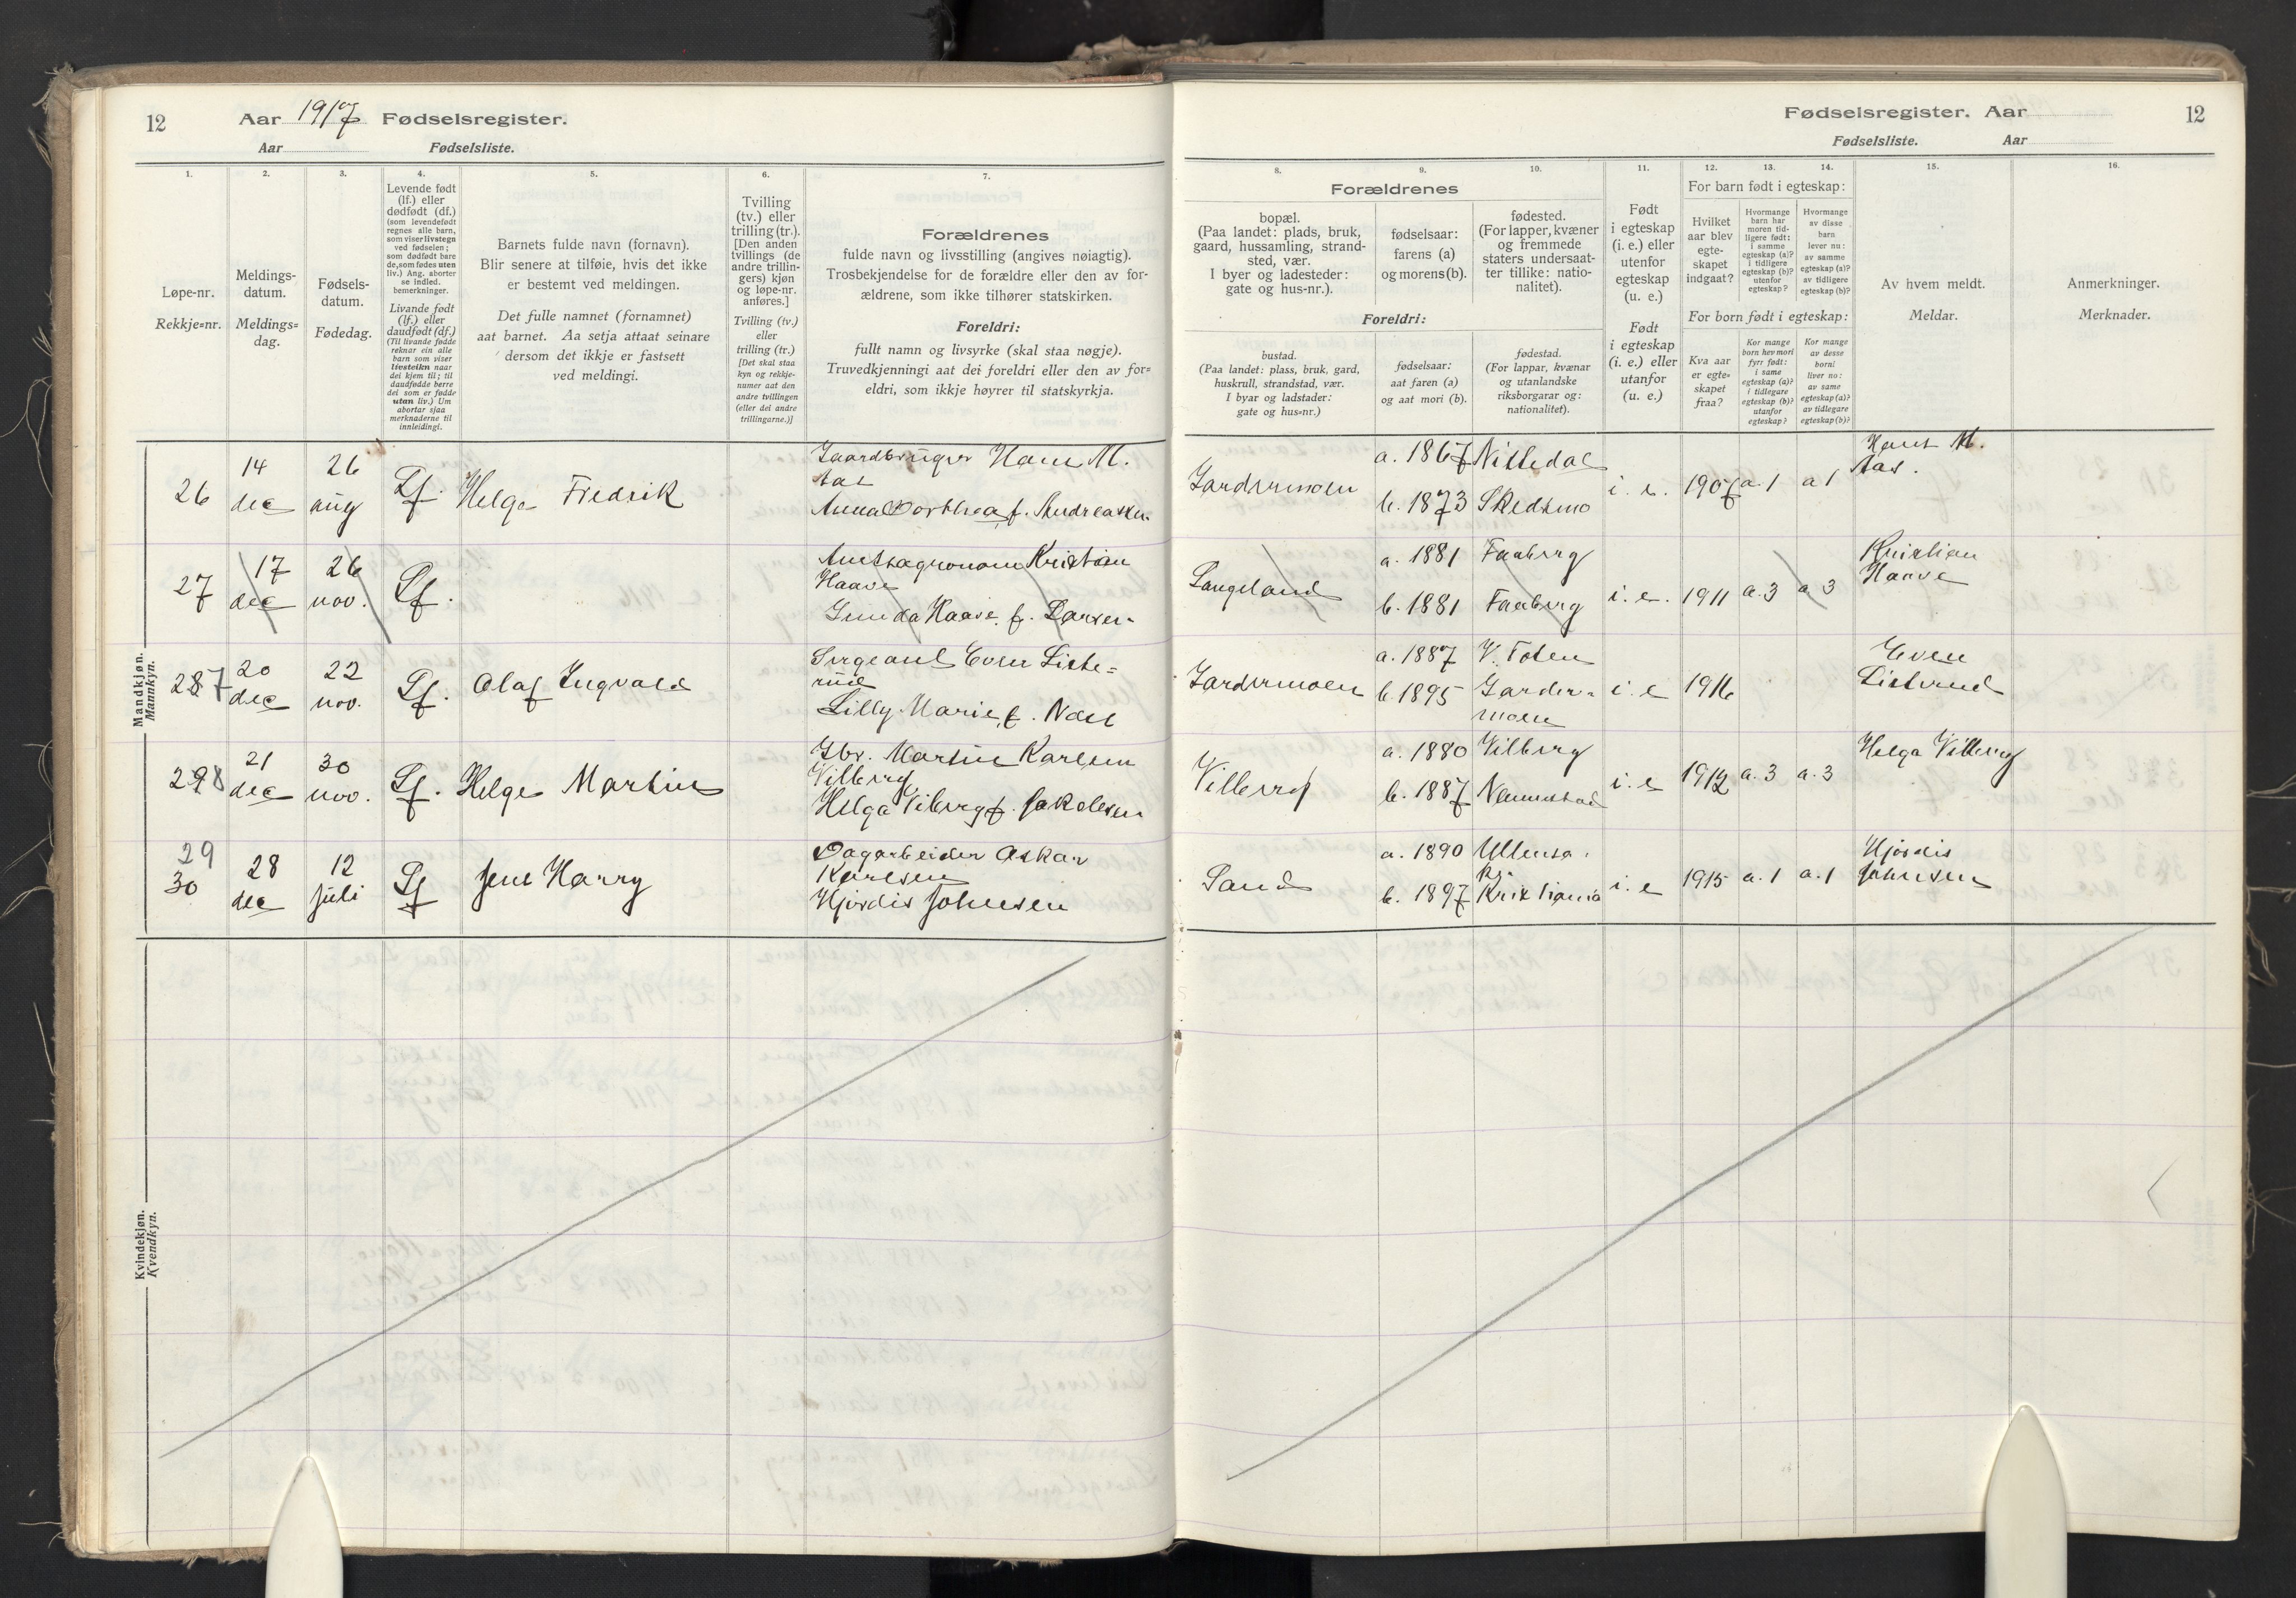 12
Aar 1917 Fødselsregister.
Aar Fødselsliste.
1.
2.
3.
4.
5.
6.
7.
Løpe-nr.
Rekkje=nr.
Meldings-
datum.
Meldings=
dag.
Fødsels-
datum.
Fødedag.
Levende født
(lf.) eller
dødfødt (df.)
(som levendefødt
regnes alle barn,
som viser livstegn
ved fødselen;
som dødfødt bare
de, som fødes uten
liv.) Ang. aborter
se indled.
bemerkninger.
Livande født
(lf.) eller
daudfødt (df.)
(Til livande fødde
reknar ein alle
barn som viser
livsteikn naar
dei kjem til; til
daudfødde berre
dei som er fødde
utan liv.) Um
abortar sjaa
merknaderne til
innleidingi.
Barnets fulde navn (fornavn).
Blir senere at tilføie, hvis det ikke
er bestemt ved meldingen.
Det fulle namnet (fornamnet)
aat barnet. Aa setja attaat seinare
dersom det ikkje er fastsett
ved meldingi.
Tvilling
(tv.) eller
trilling (tr.).
[Den anden
tvillings (de
andre trillin-
gers) kjøn
og løpe-nr.
anføres.]
Tvilling (tv.)
eller
trilling (tr.)
[Det skal staa
kyn og rekkje-
numer aat den
andre tvillingen
(eller dei andre
trillingarne.)]
Forældrenes
fulde navn og livsstilling (angives nøiagtig).
Trosbekjendelse for de forældre eller den av for-
ældrene, som ikke tilhører statskirken.
Foreldri:
fullt namn og livsyrke (skal staa nøgje).
Truvedkjenningi aat dei foreldri eller den av for=
eldri, som ikkje høyrer til statskyrkja.
Mandkjøn.
Mannkyn.
26 14 dec 26 aug Lf. Helge Fredrik
Gaardbruger Hans M.
Aas
Anna Dorthea f. Andreassen
27 17 dec 26 nov. Lf.
Amtsagronom Kristian
Haave
Gunda Haave f. Larsen
287 20 dec 22 nov. Lf. Olaf Ingvald
Sergeant Even Liste=
rud
Lilly Marie f. Næss
298 21 dec 30 nov. Lf. Helge Martin
Gbr. Martin Karlsen
Vilberg
Helga Vilberg f. Jakobsen
29
30 28 dec 12 juli Lf Jens Harry
Dagarbeider Oskar
Karlsen
Hjørdis Johnsen
Kvindekjøn.
Kvendkyn.
Fødselsregister. Aar 12
Fødselsliste. Aar
8.
9.
10.
11.
12.
13.
14.
15.
16.
Forældrenes
bopæl.
(Paa landet: plads, bruk,
gaard, hussamling, strand-
sted, vær.
I byer og ladesteder:
gate og hus-nr.).
fødselsaar:
farens (a)
og morens (b).
fødested.
(For lapper, kvæner
og fremmede
staters undersaat-
ter tillike: natio-
nalitet).
Foreldri:
bustad.
(Paa landet: plass, bruk, gard,
huskrull, strandstad, vær.
I byar og ladstader:
gate og hus=nr.)
fødselsaar:
aat faren (a)
og aat mori (b).
fødestad.
(For lappar, kvænar
og utanlandske
riksborgarar og:
nationalitet).
Født
i egteskap
(i. e.) eller
utenfor
egteskap
(u. e.)
Født
i egteskap
(i. e.) eller
utanfor
(u. e.)
For barn født i egteskap:
Hvilket
aar blev
egte-
skapet
indgaat?
Hvormange
barn har
moren tid-
ligere født:
i samme
egteskap (a)?
i tidligere
egteskap (b)?
utenfor
egteskap?
Hvormange
av disse
barn
lever nu:
av samme
egteskap (a)?
av tidligere
egteskap (b)?
For born født i egteskap:
Kva aar
er egte-
skapet
fraa?
Kor mange
born hev mori
fyrr født:
i same
egteskap (a)?
i tidlegare
egteskap (b)?
utanfor
egteskap?
Kor mange
av desse
borni
liver nu:
av same
egteskap (a)?
av tidlegare
egteskap (b)?
Av hvem meldt.
Meldar.
Anmerkninger.
Merknader.
Gardermoen a. 1867 Nittedal
b. 1873 Skedsmo i. e. 1907 a. 1 a 1 Hans M.
Aas.
Langeland a. 1881 Faaberg
b. 1881 Faaberg i. e. 1911 a. 3 a 3 Kristian
Haave
Gardermoen a. 1887 V. Toten
b. 1895 Garder=
moen i. e 1916 Even
Listerud
Vilberg a. 1880 Vilberg
b. 1887 Nannestad i. e 1912 a. 3 a. 3 Helga Vilberg
Sand a. 1890 Ullensa.
ker
b. 1897 Kristiania i. e 1915 a. 1 a. 1 Hjørdis
Johnsen